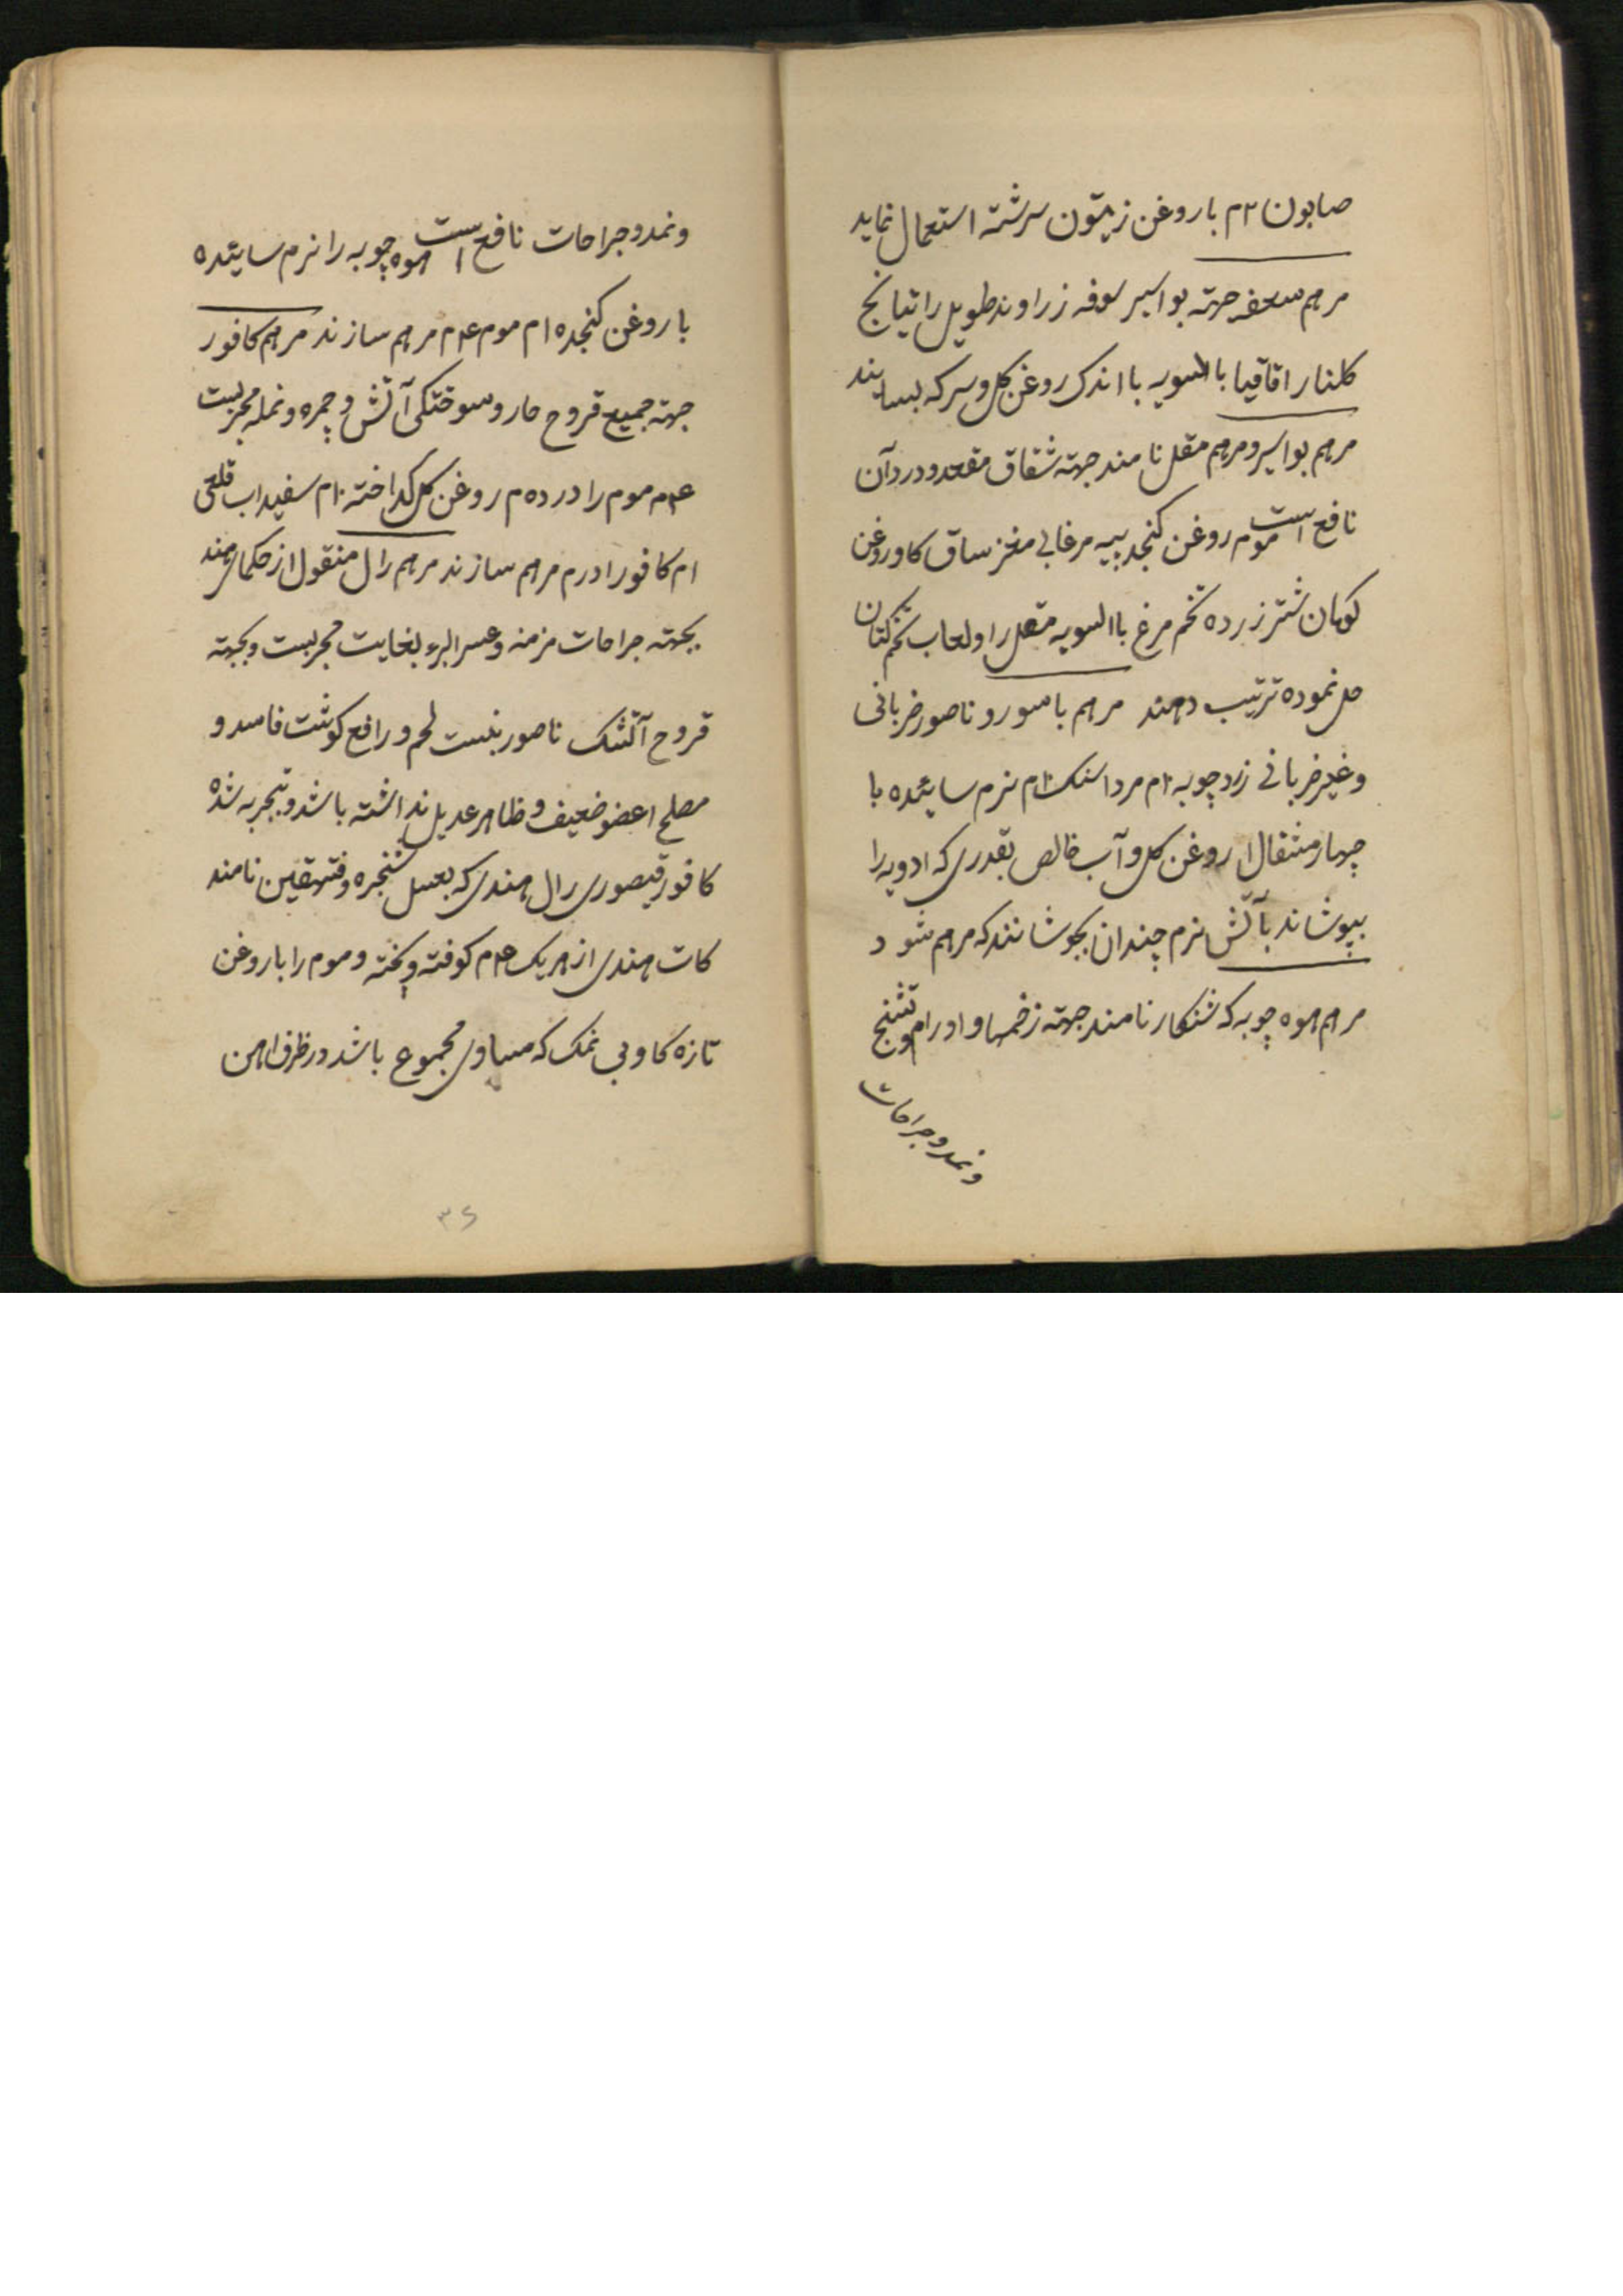 صابون ۲م با روغن زیتون سرشته استعمال نماید
مرهم سعفه جهته بواسیر سوفه زراوند طویل راتیانج
کلنار اقاقیا باالسویه با اندک روغن کل و سرکه بسایند
مرهم بواسیر و مرهم مقل نامند جهته شقاق مقعد و درد آن
نافع است موم روغن کنجد پیه مرغابی مغز ساق کاو روغن
کوهان شتر زرده تخم مرغ باالسویه مقل را و لعاب تخم کتان
حل نموده ترتیب دهند مرهم باسور و ناصور ضربانی
و غیر ضربانی زردچوبه ۲م مرداسنک ۲م نرم سائیده با
چهار مثقال روغن کل و آب خالص بقدری که ادویه را
بپوشاند باآتش نرم چندان بجوشانند که مرهم شود
مرهم هوه چوبه که شنکار نامند جهته زخمها و اورام و تشنج
و نمد و جراحات
و نمد و جراحات نافع است هوه چوبه را نرم سائیده
با روغن کنجد ۵م موم ۴م مرهم سازند مرهم کافور
جهته جمیع قروح حار و سوختکی آتش و جمره و نمله مجربست
۴م موم را در ده م روغن کل کداخته ۲م سفیداب قلعی
۱م کافور ادرم مرهم سازند مرهم رال منقول از حکمای هند
بجهته جراحات مزمنه و عسرالبرء بغایت مجربست و بجهته
قروح آتشک ناصور بنست لحم و رافع کوشت فاسد و
مصلح اعضو ضعیف و ظاهر عدیل نداشته باشد و بتجربه شده
کافور قیصوری رال هندی که بعسل شنجره و قنهقین نامند
کات هندی از هریک ۴م کوفته و بخته و موم را با روغن
تازه کاو بی نمک که مساوی مجموع باشد در ظرف اهن
۳۶